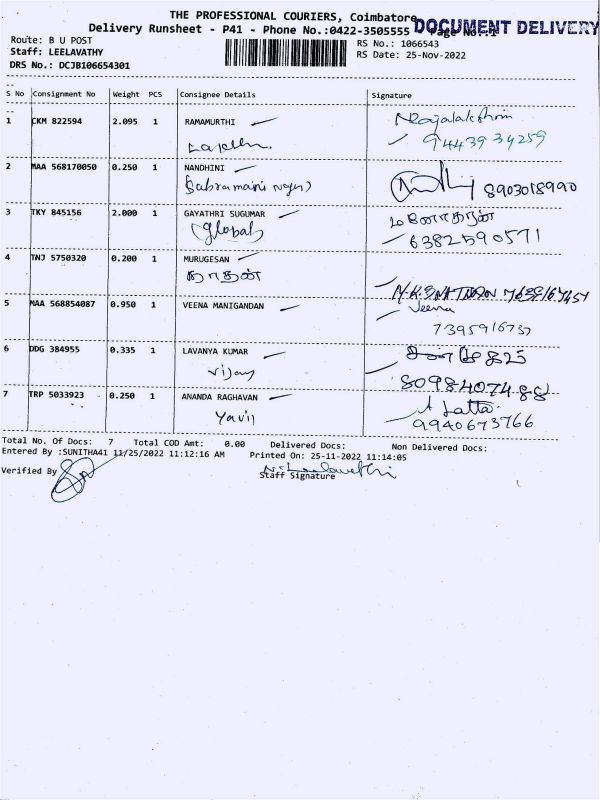 THE PROFESSIONAL COURIERS, Coimbatore
Delivery Runsheet - P41 - Phone No.:0422-3505555 Page No.:1
DOCUMENT DELIVERY
Route: B U POST
RS No.: 1066543
Staff: LEELAVATHY
RS Date: 25-Nov-2022
DRS No.: DCJB106654301
S No Consignment No Weight PCS Consignee Details Signature
1 CKM 822594 2.095 1 RAMAMURTHI
N Rajalakshmi
9443934259
2 MAA 568170050 0.250 1 NANDHINI
8903018990
3 TKY 845156 2.000 1 GAYATHRI SUGUMAR
(global)
மனோகரன்
6382590571
4 TNJ 5750320 0.200 1 MURUGESAN
5 MAA 568854087 0.950 1 VEENA MANIGANDAN
Veena
7395916737
6 DDG 384955 0.335 1 LAVANYA KUMAR
Vijay
8098407488
7 TRP 5033923 0.250 1 ANANDA RAGHAVAN
A Latta
9940673766
Total No. Of Docs: 7 Total COD Amt: 0.00 Delivered Docs: Non Delivered Docs:
Entered By :SUNITHA41 11/25/2022 11:12:16 AM Printed On: 25-11-2022 11:14:05
Verified By
Staff Signature